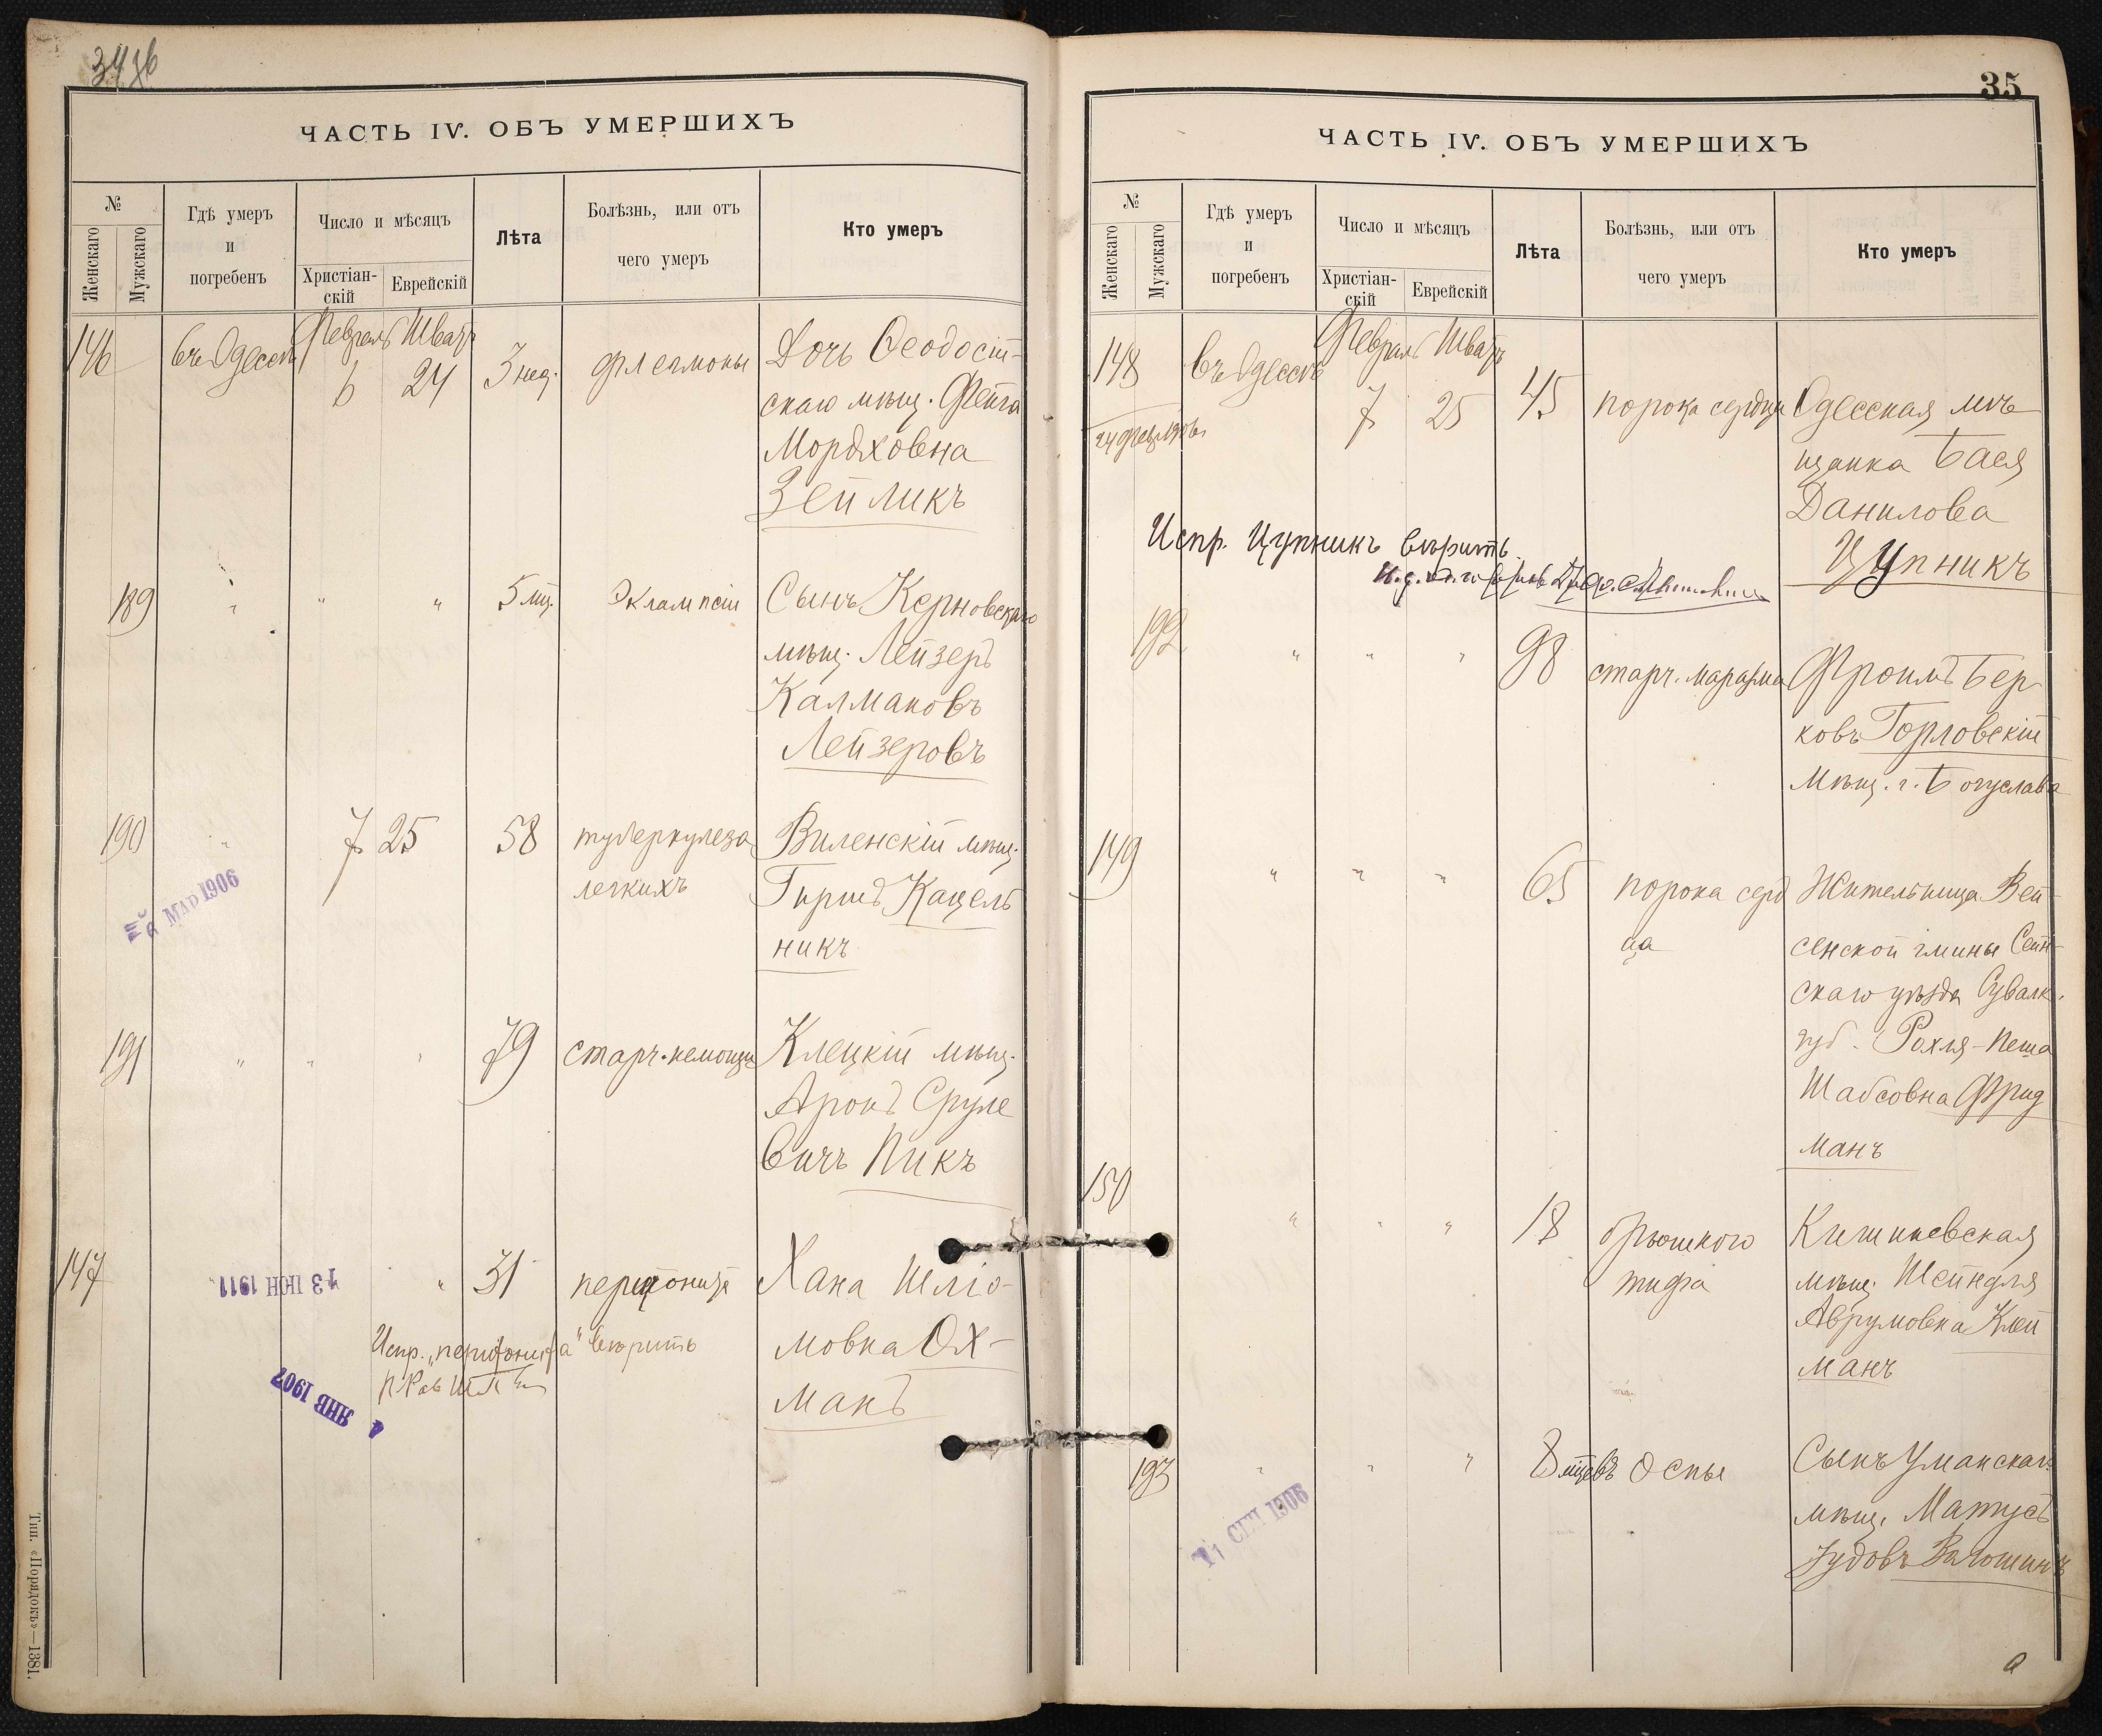 34 об
ЧАСТЬ IV. ОБЪ УМЕРШИХЪ
№
Женскаго
Мужскаго
Гдѣ умеръ
и
погребенъ
Число и мѣсяцъ
Христіан-
скій
Еврейскій
Лѣта
Болѣзнь, или отъ
чего умеръ
Кто умеръ
146 въ Одессѣ Февраль Шватъ
6 24 3 нед. флегмоны Дочь Ѳеодосій-
скаго мѣщ. Фейга
Мордховна
Зейликъ
189 " " " 5 мц. Эклампсіи Сынъ Керновскаго
мѣщ. Лейзеръ
Калмановъ
Лейзеровъ
190 " 7 25 58 туберкулеза Виленскій мѣщ.
легкихъ Гиршъ Кацель
никъ
МАР 1906
191 " " " 79 старч. немощи Клецкій мѣщ.
Аронъ Сруле
вичъ Пикъ
147 " 31 перитонита Хана Шлiо-
мовна Ох-
манъ
13 ІЮН 1911
Испр. „перитонита" вѣрить
4 ЯНВ 1907
Тип. «Порядокъ»—1381.
35
ЧАСТЬ IV. ОБЪ УМЕРШИХЪ
№
Женскаго
Мужскаго
Гдѣ умеръ
и
погребенъ
Число и мѣсяцъ
Христіан-
скій
Еврейскій
Лѣта
Болѣзнь, или отъ
чего умеръ
Кто умеръ
148 въ Одессѣ Февраль Шватъ
7 25 45 порока сердца Одесская мѣ
щанка Бася
Данилова
Цупникъ
Испр. Цупникъ вѣрить
192 " " " 98 старч. маразма Фроимъ Бер
ковъ Горловскій
Мѣщ. г. Богуслава
149 " " " 65 порока серд Жительница Вей
ца сенской гмины Сейн-
скаго уѣзда Сувалк.
губ. Рохля-Пеша
Шабсовна Фрид
манъ
150 " " " 18 брюшного Кишиневская
тифа мѣщ. Шейндля
Аврумовна Клей
манъ
193 " " " 8 мцевъ Оспы Сынъ Уманскаго
мѣщ. Матусъ
Іудовъ Волошинъ
11 СЕН 1906